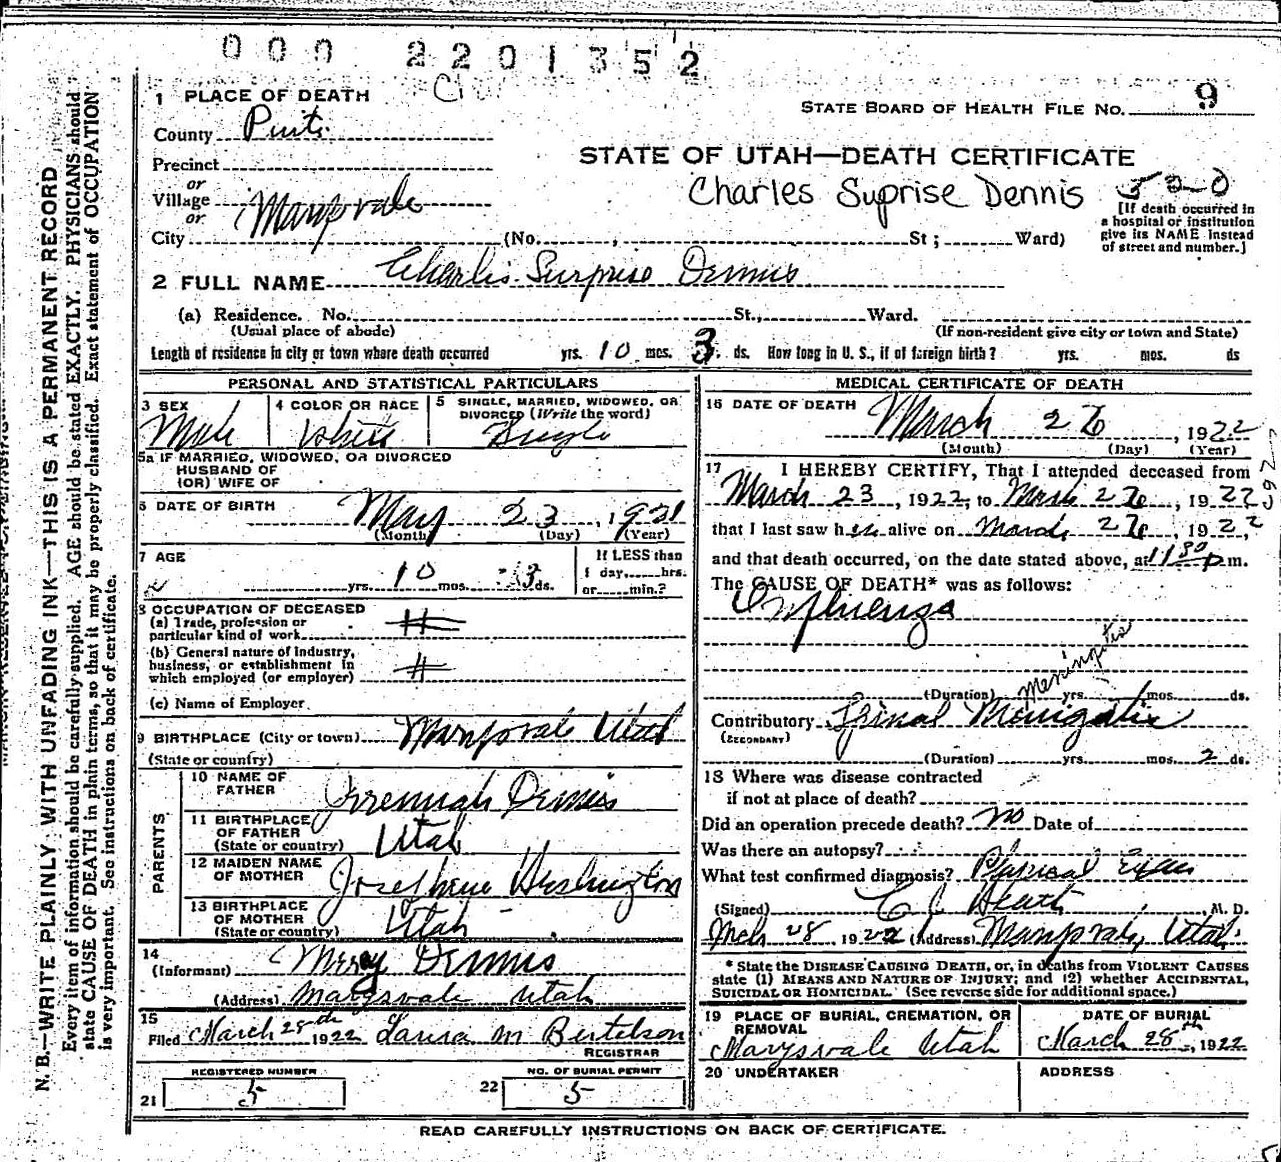 000 2201352
1 PLACE OF DEATH
STATE BOARD OF HEALTH FILE No. 9
County Piute
Precinct
or
Village Marysvale
or
City (No. , St ; Ward)
STATE OF UTAH—DEATH CERTIFICATE
Charles Suprise Dennis
[If death occurred in
a hospital or institution
give its NAME instead
of street and number.]
2 FULL NAME Charlis Surprise Dennis
(a) Residence. No. St., Ward.
(Usual place of abode) (If non-resident give city or town and State)
Length of residence in city or town where death occurred yrs. 10 mos. 3 ds. How long in U. S., if of foreign birth? yrs. mos. ds
PERSONAL AND STATISTICAL PARTICULARS
3 SEX
Male
4 COLOR OR RACE
White
5 SINGLE, MARRIED, WIDOWED, OR
DIVORCED (Write the word)
Single
5a IF MARRIED, WIDOWED, OR DIVORCED
HUSBAND OF
(OR) WIFE OF
6 DATE OF BIRTH May 23, 1921
(Month) (Day) (Year)
7 AGE
yrs. 10 mos. 3 ds.
If LESS than
1 day, hrs.
or min.?
8 OCCUPATION OF DECEASED
(a) Trade, profession or
particular kind of work
(b) General nature of industry,
business, or establishment in
which employed (or employer)
(c) Name of Employer
9 BIRTHPLACE (City or town) Marysvale Utah
(State or country)
PARENTS
10 NAME OF
FATHER Jeremiah Dennis
11 BIRTHPLACE
OF FATHER
(State or country) Utah
12 MAIDEN NAME
OF MOTHER Josephene
13 BIRTHPLACE
OF MOTHER
(State or country) Utah
14
(Informant) Mercy Dennis
(Address) Marysvale Utah
15
Filed March 28th 1922 Laura M Bertelson
REGISTRAR
REGISTERED NUMBER
21 5
NO. OF BURIAL PERMIT
22 5
MEDICAL CERTIFICATE OF DEATH
16 DATE OF DEATH March 26, 1922
(Month) (Day) (Year)
17 I HEREBY CERTIFY, That I attended deceased from
March 23, 1922, to March 26, 1922
that I last saw h alive on March 26, 1922,
and that death occurred, on the date stated above, at 11 30 p m.
The CAUSE OF DEATH* was as follows:
Influenza
meningitis
(Duration) yrs. mos. ds.
Contributory Spinal Menigatis
(SECONDARY)
(Duration) yrs. mos. 2 ds.
18 Where was disease contracted
if not at place of death?
Did an operation precede death? no Date of
Was there an autopsy?
What test confirmed diagnosis? Physical Exam
(Signed) M. D.
Mch 28 1922 (Address) Marysvale, Utah.
* State the DISEASE CAUSING DEATH, or, in deaths from VIOLENT CAUSES
state (1) MEANS AND NATURE OF INJURY; and (2) whether ACCIDENTAL,
SUICIDAL OR HOMICIDAL. (See reverse side for additional space.)
19 PLACE OF BURIAL, CREMATION, OR
REMOVAL
Marysvale Utah
DATE OF BURIAL
March 28th, 1922
20 UNDERTAKER
ADDRESS
READ CAREFULLY INSTRUCTIONS ON BACK OF CERTIFICATE.
N. B.—WRITE PLAINLY WITH UNFADING INK—THIS IS A PERMANENT RECORD
Every item of information should be carefully supplied. AGE should be stated EXACTLY. PHYSICIANS should
state CAUSE OF DEATH in plain terms, so that it may be properly classified. Exact statement of OCCUPATION
is very important. See instructions on back of certificate.